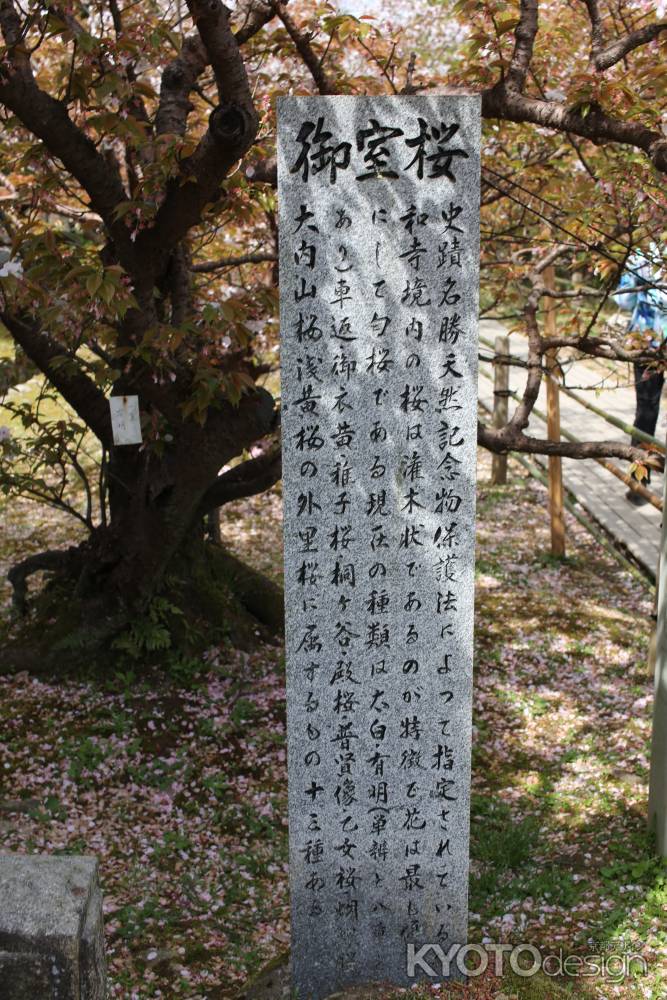 御室桜
史蹟名勝天然記念物保護法によつて指定されている
和寺境内の桜は潅木状であるのが特徴で花は最も
にして匂桜である現在の種類は太白・有明(単辨と八重
あり)車返・御衣黄・稚子桜・桐ヶ谷・殿桜・普賢像・乙女桜・胡
大内山桜・浅黄桜の外里桜に属するもの十三種ある
KYOTOdesign